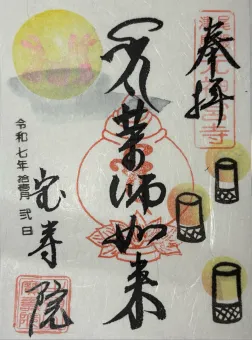 奉拝
薬師如来
令和七年拾壱月弐日
宝寿院